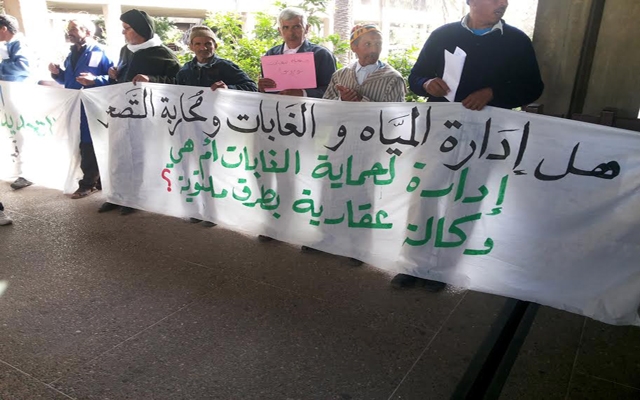 هل إدارة المياه و الغابات ومحاربة التصحر
إدارة لحماية الغابات أم هي
وكالة عقارية بطرق ملتوية ؟